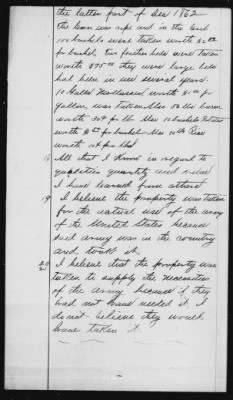 the latter part of Dec 1862
the Corn was ripe and in the Crib
100 bushels were taken worth $1.00
per bushel. two feather beds were taken
worth $75.00 they were large beds
had been in use several years.
10 Galls Molasses worth $1.00 per
gallon, was taken Also 50 lbs bacon
worth 30¢ per lb Also 10 bushels Potatoes
worth per bushel Also
worth 10¢ per
18 All that I Know in regard to
qualities quantity and value
I have learned from others
19 I believe the property was taken
for the actual use of the army
of the United States because
said army was in the country
and took it
20 I believe that the property was
taken to supply the necessities
of the army because if they
had not have needed it I
do not believe they would
have taken it